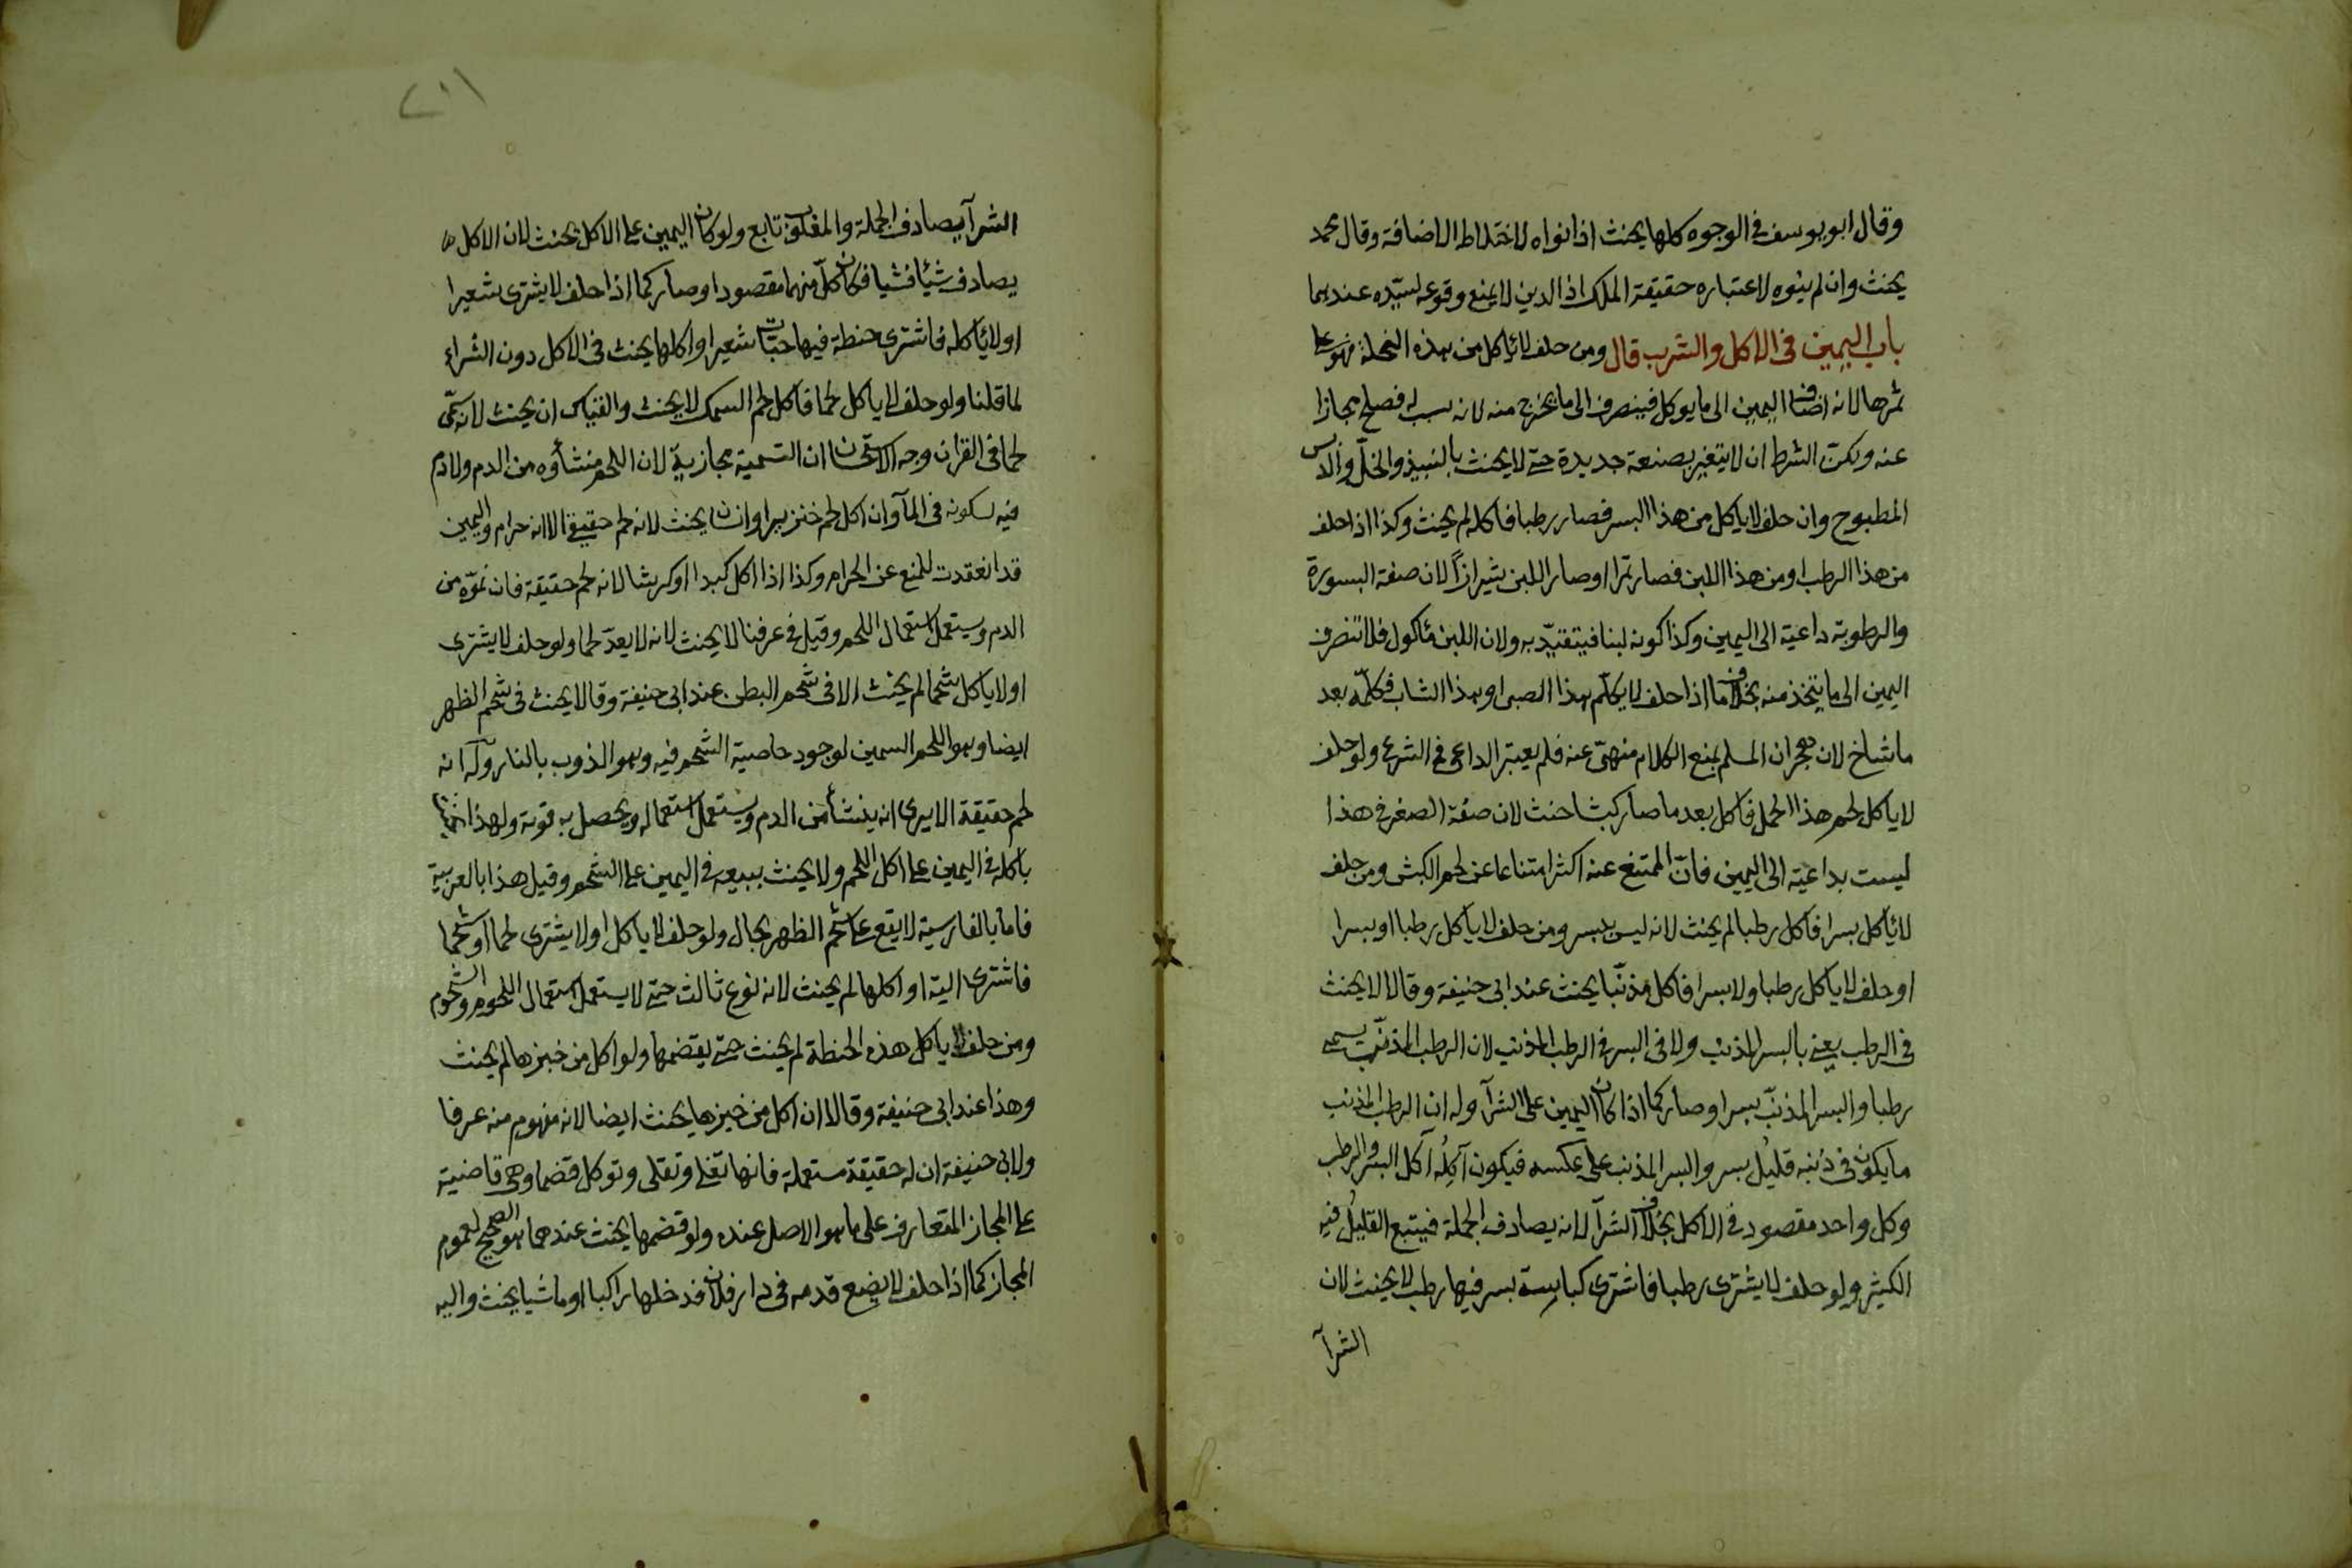 وقال ابو يوسف في الوجوه كلها يحنث اذا نواه لاختلاط الاضافة وقال محمد
يحنث وان لم ينوه لاعتباره حقيقة الملك اذ الدين لا يمنع وقوعه لسيّده عندهما
باب اليمين في الاكل والشرب قال ومن حلف لا يأكل من هذه النخلة فهو على
ثمرها لانه اضاف اليمين الى ما يوكل فينصرف الى ما يخرج منه لانه سبب له فصلح مجازا
عنه ولكن الشرط ان لا يتغير بصنعة جديدة حتى لا يحنث بالنبيذ والخلّ والدبس
المطبوخ وان حلف لا ياكل من هذا البسر فصار رطبا فاكله لم يحنث وكذا اذا حلف
من هذا الرطب او من هذا اللبن فصار تمرا او صار اللبن شيرازاً لان صفة البسورة
والرطوبة داعية الى اليمين وكذا كونه لبنا فيتقيّد به ولان اللبن مأكول فلا تنصرف
اليمين الى ما يتخذ منه بخلاف ما اذا حلف لا يكلّم هذا الصبي او هذا الشاب فكلّمه بعد
ما شاخ لان هجران المسلم بمنع الكلام منهيّ عنه فلم يعتبر الداعي في الشرع ولو حلف
لا ياكل لحم هذا الحمل فاكل بعد ما صار كبشا حنث لان صفة الصغر في هذا
ليست بداعية الى اليمين فانّ الممتنع عنه اكثر امتناعا عن لحم الكبش ومن حلف
لا يأكل بسرا فاكل رطبا لم يحنث لانه ليس ببسر ومن حلف لا ياكل رطبا او بسرا
او حلف لا ياكل رطبا ولا بسرا فاكل مذنّبا يحنث عند ابي حنيفه وقالا لا يحنث
في الرطب يعني بالبسر المذنب ولا في البسر في الرطب المذنب لان الرطب المذنّب يسمى
رطبا والبسر المذنبّ بسرا وصار كما اذا كان اليمين على الشرآ وله ان الرطب المذنب
ما يكون في ذنبه قليل بسر والبسر المذنب على عكسه فيكون آكِلُه آكل البسر والرطب
وكل واحد مقصود في الاكل بخلاف الشرآ لانه يصادف الجملة فيتبع القليلُ فيه
الكثير ولو حلف لا يشترى رطبا فاشترى كباسة بسر فيها رطب لا يحنث لان
الشرآ
٢١١
الشرآ يصادف الجملة والمغلوب تابع ولو كان اليمين على الاكل يحنث لان الاكل
يصادف شيئا فشيا فكان كلّ منهما مقصودا وصار كما اذا حلف لا يشترى شعيرا
او لا يأكله فاشترى حنطة فيها حبّات شعير او اكلها يحنث في الاكل دون الشراء
لما قلنا ولو حلف لا ياكل لحما فاكل لحم السمك لا يحنث والقياس ان يحنث لانه سمّى
لحما في القران وجه الاستحسان ان التسمية مجازيةّ لان اللحم منشأوه من الدم ولا دم
فيه لسكونه في المآ وان اكل لحم خنزير او انسان يحنث لانه لحم حقيقي الا انه حرام واليمين
قد انعقدت للمنع عن الحرام وكذا اذا اكل كبدا او كرشا لانه لحم حقيقة فان نموّه من
الدم ويستعمل استعمال اللحم وقيل في عرفنا لا يحنث لانه لا يعدّ لحما ولو حلف لا يشترى
او لا ياكل شحما لم يحنث الا في شحم البطن عند ابي حنيفة وقالا يحنث في شحم الظهر
ايضا وهو اللحم السمين لوجود خاصية الشحم فيه وهو الذوب بالنار وله انه
لحم حقيقة الا يرى انه ينشأ من الدم ويستعمل استعماله ويحصل به قوته ولهذا يحنث
باكله في اليمين على اكل اللحم ولا يحنث ببيعه في اليمين على الشحم وقيل هذا بالعربية
فاما بالفارسية لا يقع على شحم الظهر بحال ولو حلف لا ياكل او لا يشترى لحما او شحما
فاشترى الية او اكلها لم يحنث لانه نوع ثالث حتى لا يستعمل استعمال اللحوم والشحوم
ومن حلف لا ياكل هذه الحنطة لم يحنث حتى يقضمها ولو اكل من خبزها لم يحنث
وهذا عند ابي حنيفة وقالا ان اكل من خبزها يحنث ايضا لانه مفهوم منه عرفا
ولابي حنيفة ان له حقيقة مستعملة فانها تغلى وتقلى وتوكل قضما وهي قاضية
على المجاز المتعارف على ما هو الاصل عنده ولو قضمها يحنث عندهما هو الصحيح لعموم
المجاز كما اذا حلف لا يضع قدمه في دار فلان فدخلها راكبا او ماشيا يحنث واليه